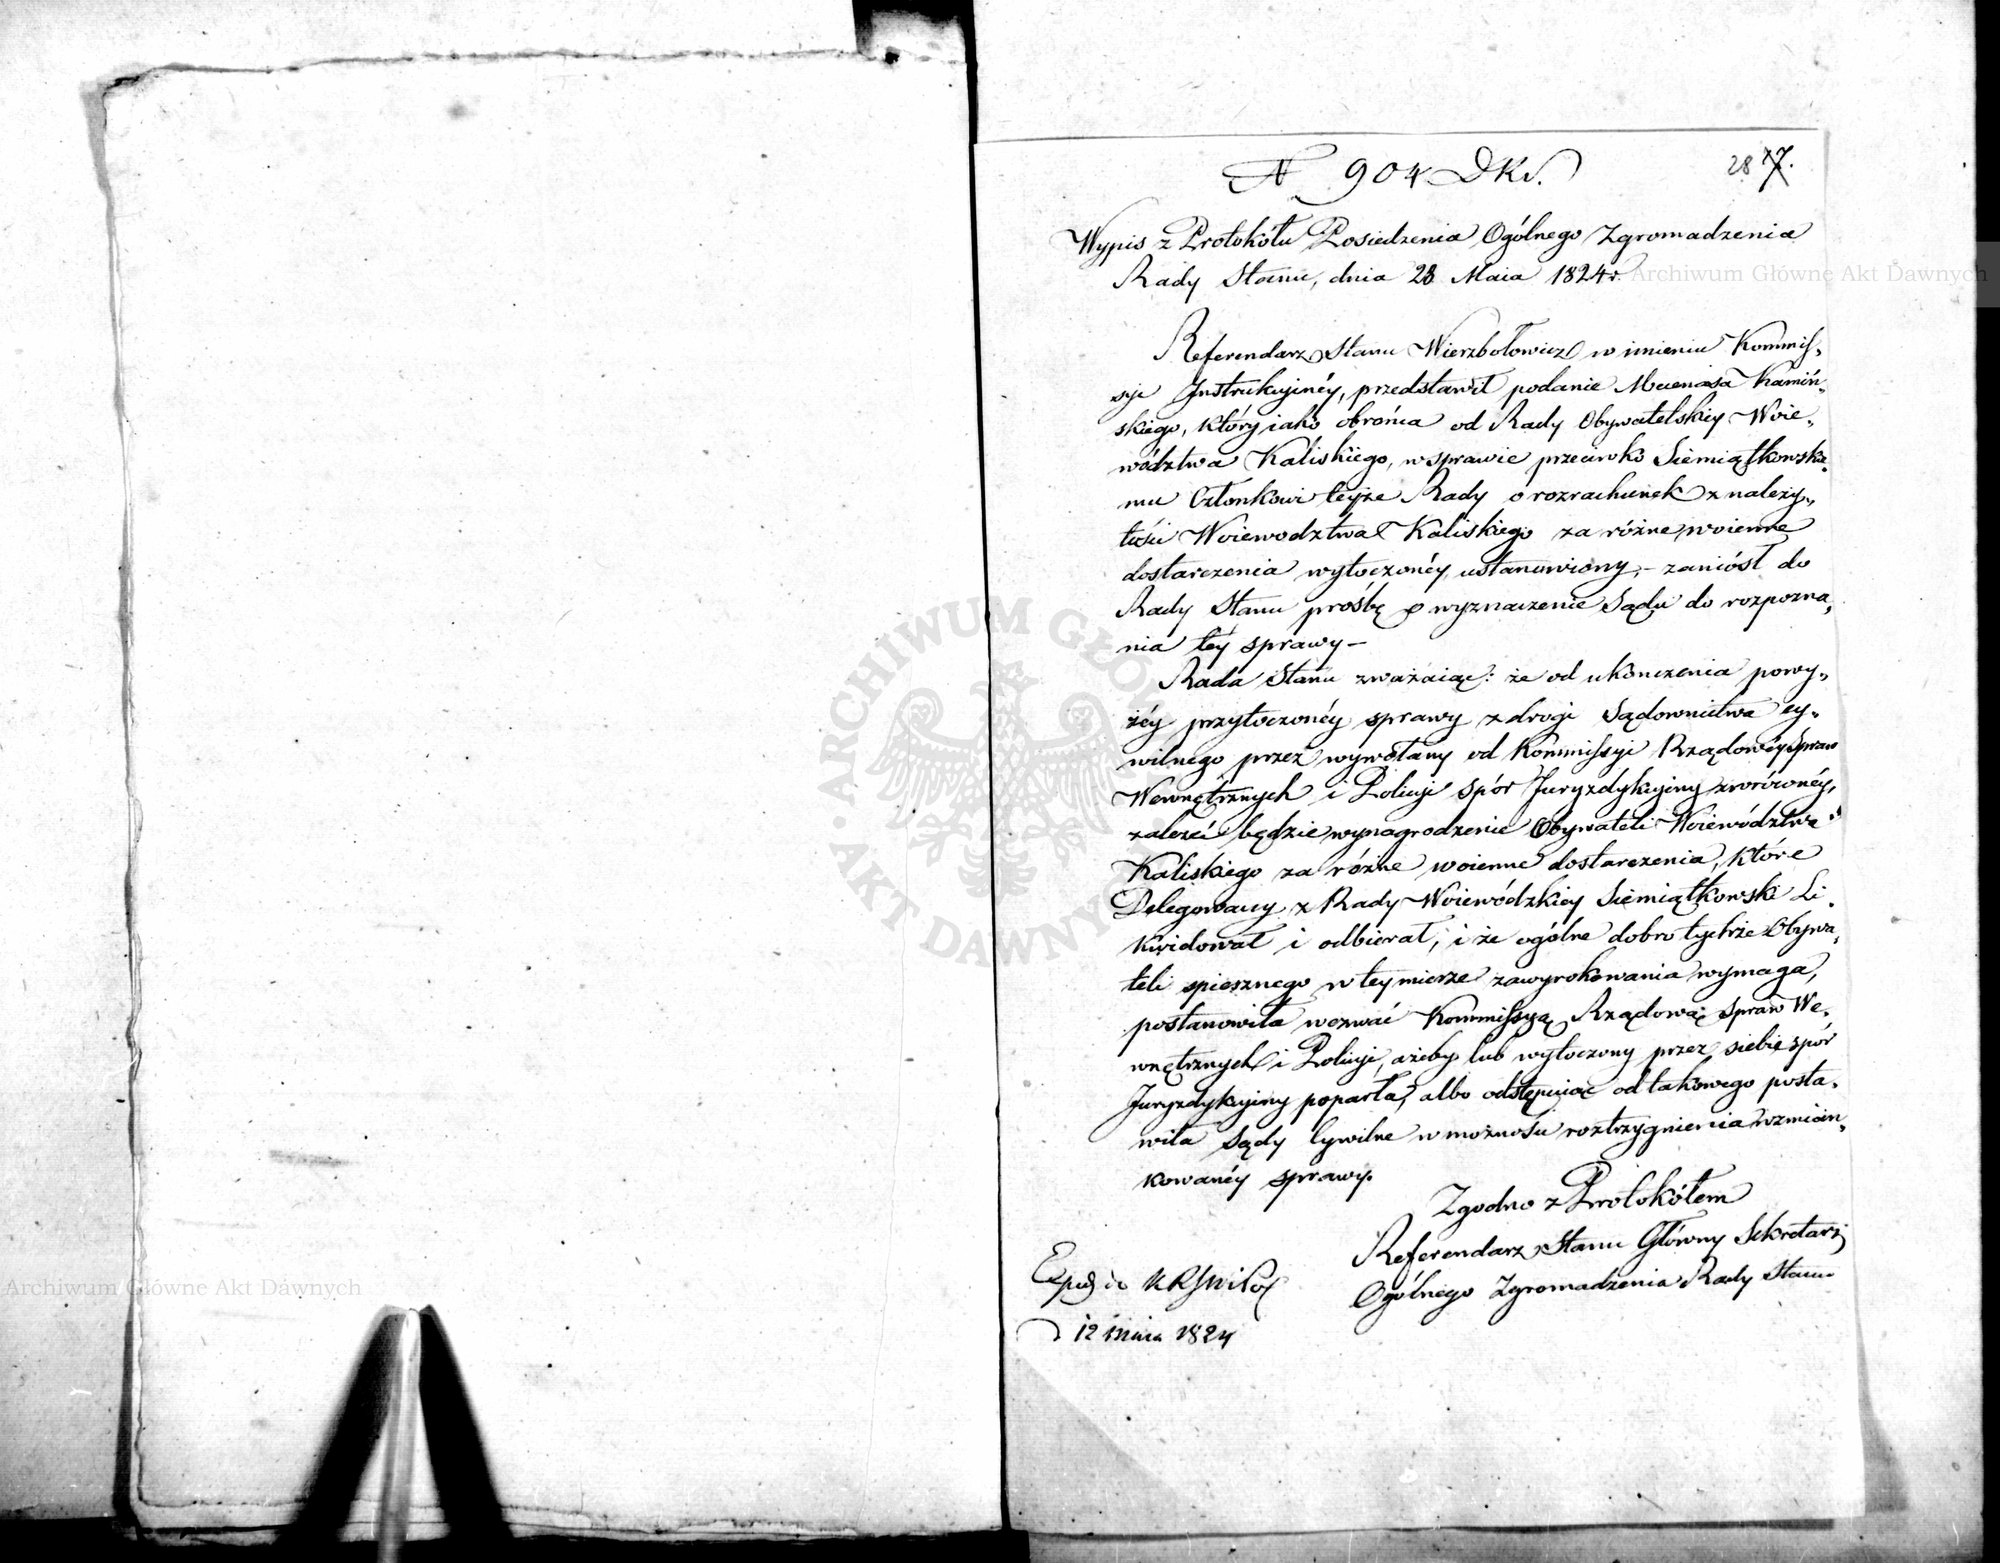 N 904 DKS.
28 77.
Wypis z Protokółu Posiedzenia Ogólnego Zgromadzenia
Rady Stanu, dnia 28 Maia 1824 r.
Archiwum Główne Akt Dawnych
Referendarz Stanu Wierzbołowicz w imieniu Kommis-
syi Instrukcyinéy, przedstawił podanie Mecenasa Kamiń-
skiego, który iako obrońca od Rady Obywatelskiey Woie-
wództwa Kaliskiego, w sprawie przeciwko Siemiątkowskie-
mu Członkowi teyże Rady o rozrachunek z należy-
tości Woiewodztwa Kaliskiego za różne woienne
dostarczenia wytoczonéy, ustanowiony, – zaniósł do
Rady Stanu prośbę o wyznaczenie Sądu do rozpozna-
nia téy sprawy –
Rada Stanu zważaiąc: że od ukonczenia powy-
żéy przytoczonéy sprawy z drogi Sądownictwa cy-
wilnego przez wywołany od Kommissyi Rządowéy Spraw
Wewnętrznych i Policyi spór Juryzdykcyiny zwróconéy,
zależéć będzie wynagrodzenie Obywateli Woiewództwa
Kaliskiego za różne woienne dostarczenia, które
Delegowany z Rady Woiewódzkiey Siemiątkowski Li-
kwidował i odbierał, i że ogólne dobro tychże Obywa-
teli spiesznego w tey mierze zawyrokowania wymaga,
postanowiła wezwać Kommissyą Rządową Spraw We-
wnętrznych i Policyi, ażeby lub wytoczony przez siebie spór
Juryzdykcyiny poparła, albo odstępuiąc od takowego posta-
wiła Sądy Cywilne w możności roztrzygnienia wzmian-
kowanéy sprawy.
Zgodno z Protokółem
Referendarz Stanu Główny Sekretarz
Ogólnego Zgromadzenia Rady Stanu
Exped do KRSWiPol
D 12 1824
Archiwum Główne Akt Dawnych
ARCHIWUM GŁÓWNE AKT DAWNYCH